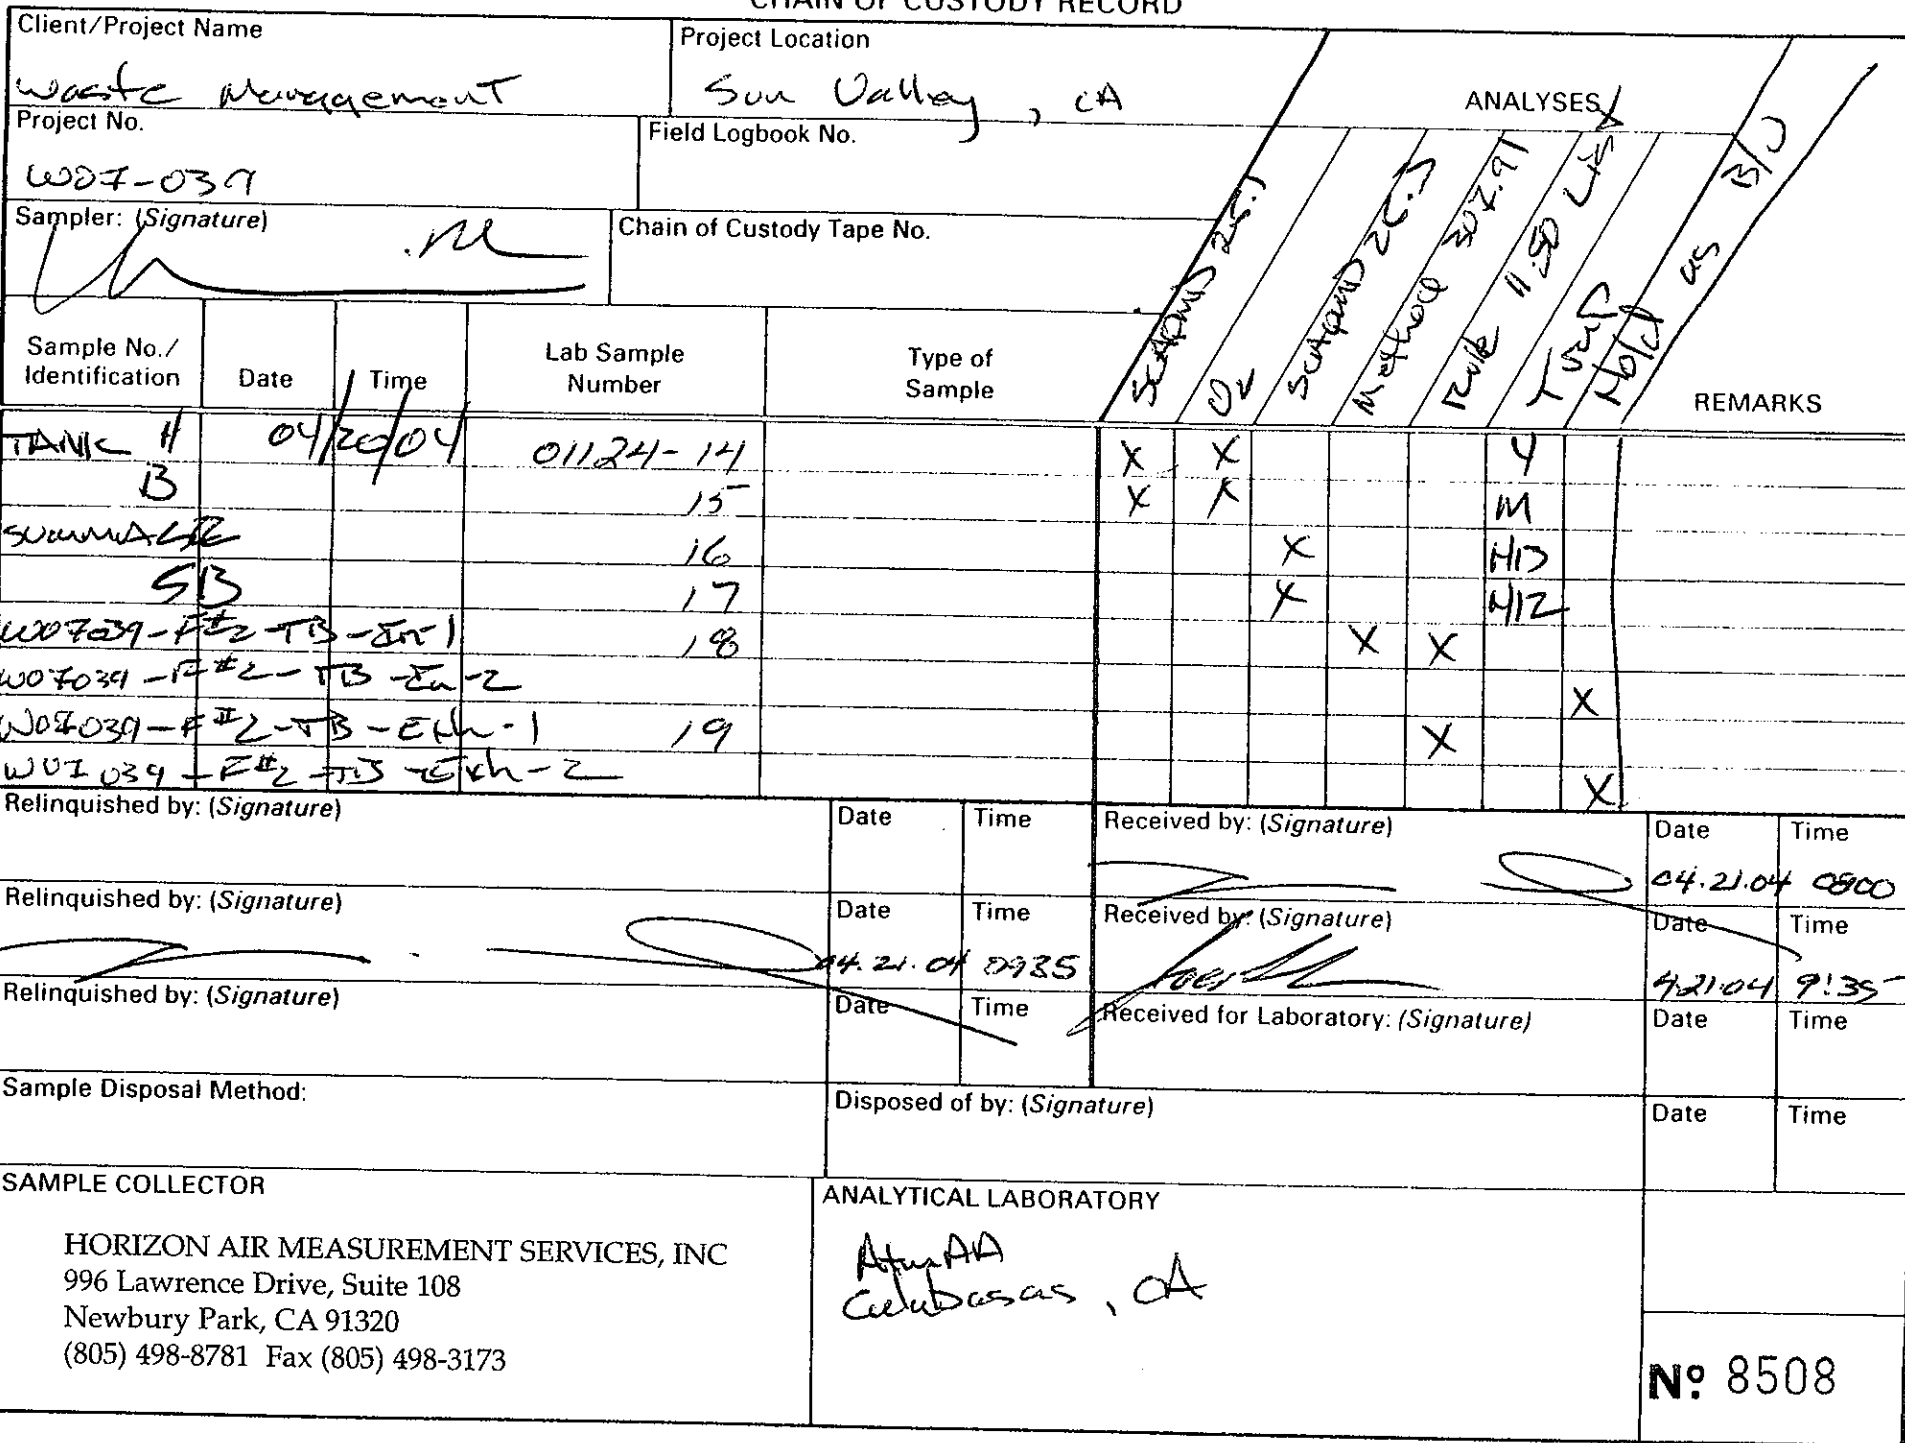 CHAIN OF CUSTODY RECORD
Client/Project Name
Waste Management
Project Location
Sun Valley, CA
ANALYSES
Project No.
W07-039
Field Logbook No.
Sampler: (Signature)
Chain of Custody Tape No.
Sample No./
Identification
Date
Time
Lab Sample
Number
Type of
Sample
SCAQMD 25.1
O2
SCAQMD 25.3
Method 307.91
Rule 1150 List
Hold as B/U
REMARKS
TANK 04/20/04 01124-14 X X
B 15 X X M
SUMMA 16 X
SB 17 X H12
W07039-F#2-TB-In-1 18 X X
W07039-F#2-TB-In-2 X
W07039-F#2-TB-Exh-1 19 X
W07039-F#2-TB-Exh-2 X
Relinquished by: (Signature)
Date Time
Received by: (Signature)
Date Time
04.21.04 0800
Relinquished by: (Signature)
Date Time
04.21.04 0935
Received by: (Signature)
Date Time
4.21.04 9:35
Relinquished by: (Signature)
Date Time
Received for Laboratory: (Signature)
Date Time
Sample Disposal Method:
Disposed of by: (Signature)
Date Time
SAMPLE COLLECTOR
HORIZON AIR MEASUREMENT SERVICES, INC
996 Lawrence Drive, Suite 108
Newbury Park, CA 91320
(805) 498-8781 Fax (805) 498-3173
ANALYTICAL LABORATORY
AtmAA
Calabasas, CA
Nº 8508